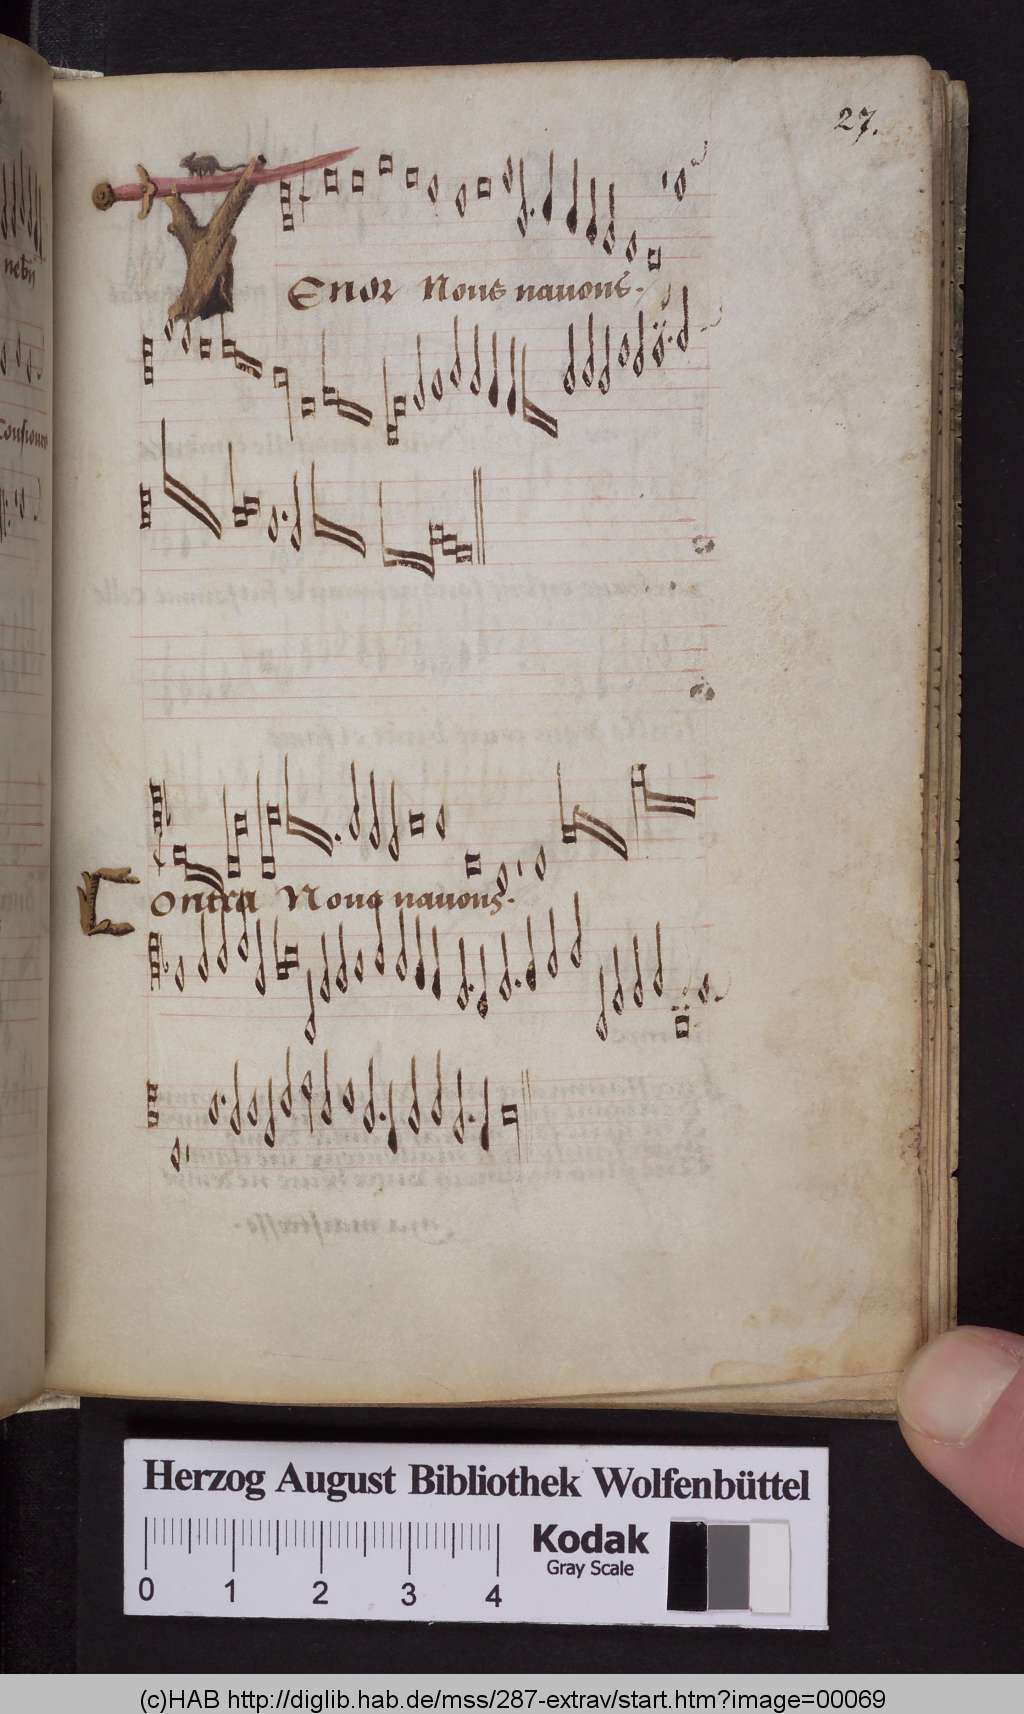 27.
Tenor Nous navons.
Contra Nous navons.
Herzog August Bibliothek Wolfenbüttel
Kodak
Gray Scale
0 1 2 3 4
(c)HAB http://diglib.hab.de/mss/287-extrav/start.htm?image=00069